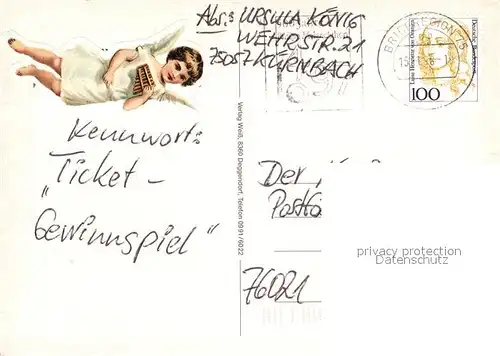 Abs.: URSULA KÖNIG
WEHRSTR. 21
75057 KÜRNBACH
Deutsche Bundespost
100
Kennwort:
"Ticket-
Gewinnspiel"
Verlag Weiß, 8360 Deggendorf, Telefon 0991/6022
Der
Postfa
76021
privacy protection
Datenschutz